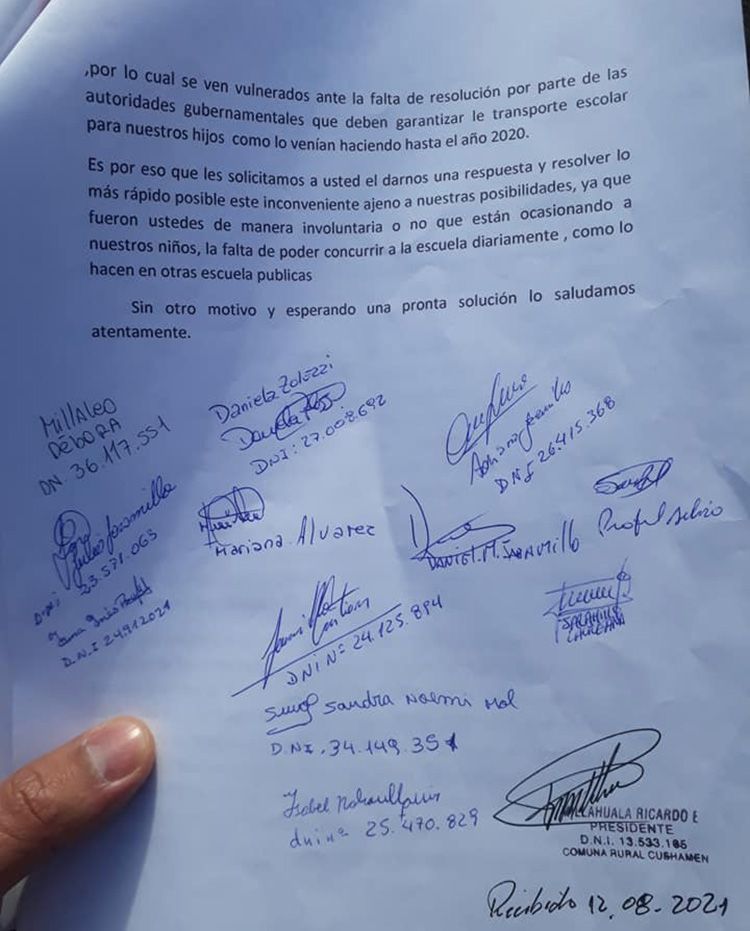 ,por lo cual se ven vulnerados ante la falta de resolución por parte de las
autoridades gubernamentales que deben garantizar le transporte escolar
para nuestros hijos como lo venían haciendo hasta el año 2020.
Es por eso que les solicitamos a usted el darnos una respuesta y resolver lo
más rápido posible este inconveniente ajeno a nuestras posibilidades, ya que
fueron ustedes de manera involuntaria o no que están ocasionando a
nuestros niños, la falta de poder concurrir a la escuela diariamente , como lo
hacen en otras escuela publicas
Sin otro motivo y esperando una pronta solución lo saludamos
atentamente.
Millaleo
Débora
DN. 36.117.551
Daniela Zolezzi
DNI: 27.008.692
DNI 26.415.368
Jaramillo
23.571.063
DNI
D.N.I 24912021
Mariana Alvarez
Daniel M. Jaramillo
DNI Nº 24.125.894
Sandra Noemi Mol
D.NI. 34.149.351
Isabel
dni nº 25.470.829
AHUALA RICARDO E
PRESIDENTE
D.N.I. 13.533.185
COMUNA RURAL CUSHAMEN
Recibido 12.08.2021